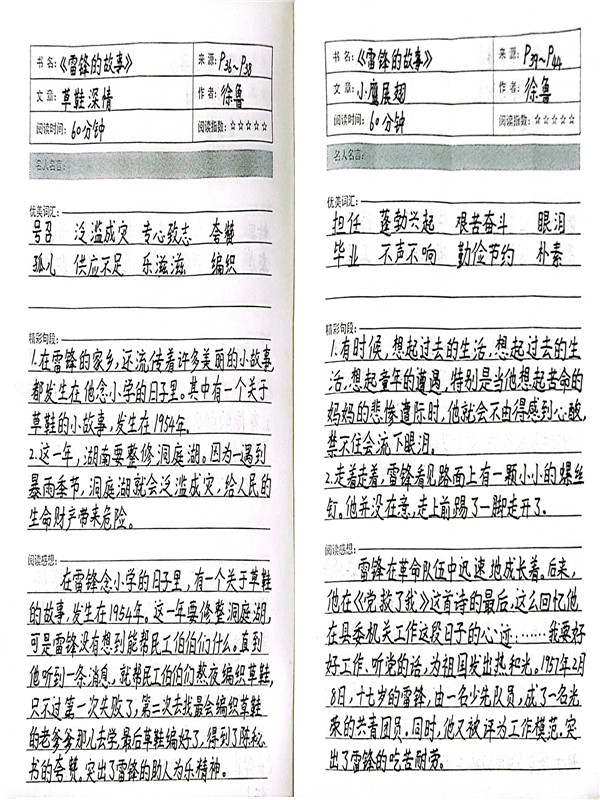 书 名：《雷锋的故事》
来 源：P36~P38
文 章：草鞋深情
作 者：徐鲁
阅读时间：60分钟
阅读指数：☆☆☆☆☆
名人名言：
优美词汇：
号召 泛滥成灾 专心致志 夸赞
孤儿 供应不足 乐滋滋 编织
精彩句段：
1.在雷锋的家乡,还流传着许多美丽的小故事,
都发生在他念小学的日子里。其中有一个关于
草鞋的小故事,发生在1954年.
2.这一年,湖南要整修洞庭湖。因为一遇到
暴雨季节,洞庭湖就会泛滥成灾,给人民的
生命财产带来危险。
阅读感想：
在雷锋念小学的日子里,有一个关于草鞋
的故事,发生在1954年。这一年要修整洞庭湖,
可是雷锋没有想到能帮民工伯伯们什么。直到
他听到一条消息,就帮民工伯伯们熬夜编织草鞋,
只不过第一次失败了,第二次去找最会编织草鞋
的老爹爹那儿去学,最后草鞋编好了,得到了陈秘
书的夸赞。突出了雷锋的助人为乐精神。
书 名：《雷锋的故事》
来 源：P39~P44
文 章：小鹰展翅
作 者：徐鲁
阅读时间：60分钟
阅读指数：☆☆☆☆☆
名人名言：
优美词汇：
担任 蓬勃兴起 艰苦奋斗 眼泪
毕业 不声不响 勤俭节约 朴素
精彩句段：
1.有时候,想起过去的生活,想起过去的生
活,想起童年的遭遇,特别是当他想起苦命的
妈妈的悲惨遭际时,他就会不由得感到心酸,
禁不住会流下眼泪.
2.走着走着,雷锋看见路面上有一颗小小的螺丝
钉。他并没在意,走上前踢了一脚走开了.
阅读感想：
雷锋在革命队伍中迅速地成长着。后来,
他在《党救了我》这首诗的最后,这么回忆他
在县委机关工作这段日子的心迹:……我要好
好工作、听党的话,为祖国发出热和光。1957年2月
8日,十七岁的雷锋,由一名少先队员,成了一名光
荣的共青团员。同时,他又被评为工作模范。突
出了雷锋的吃苦耐劳。